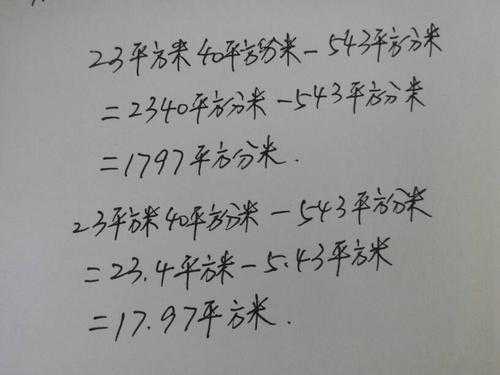 23平方米40平方分米-543平方分米
=2340平方分米-543平方分米
=1797平方分米.
23平方米40平方分米-543平方分米
=23.4平方米-5.43平方米
=17.97平方米.